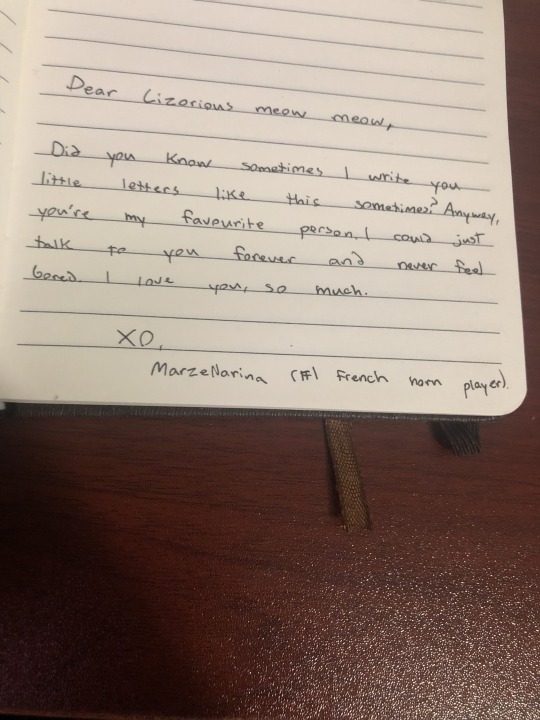 Dear Lizorious meow meow,
Did you know sometimes I write you
little letters like this sometimes? Anyway,
you're my favourite person. I could just
talk to you forever and never feel
bored. I love you, so much.
XO,
Marzellarina (#1 French horn player).